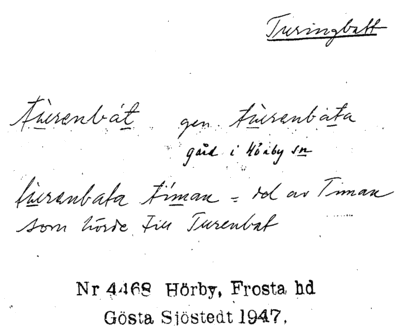 Turingbatt
tùrenbàt gen. tùrenbàta
gård i Hörby sn
tùrenbata tíman = del av Timan
som hörde till Turenbat
Nr 4468 Hörby, Frosta hd
Gösta Sjöstedt 1947.